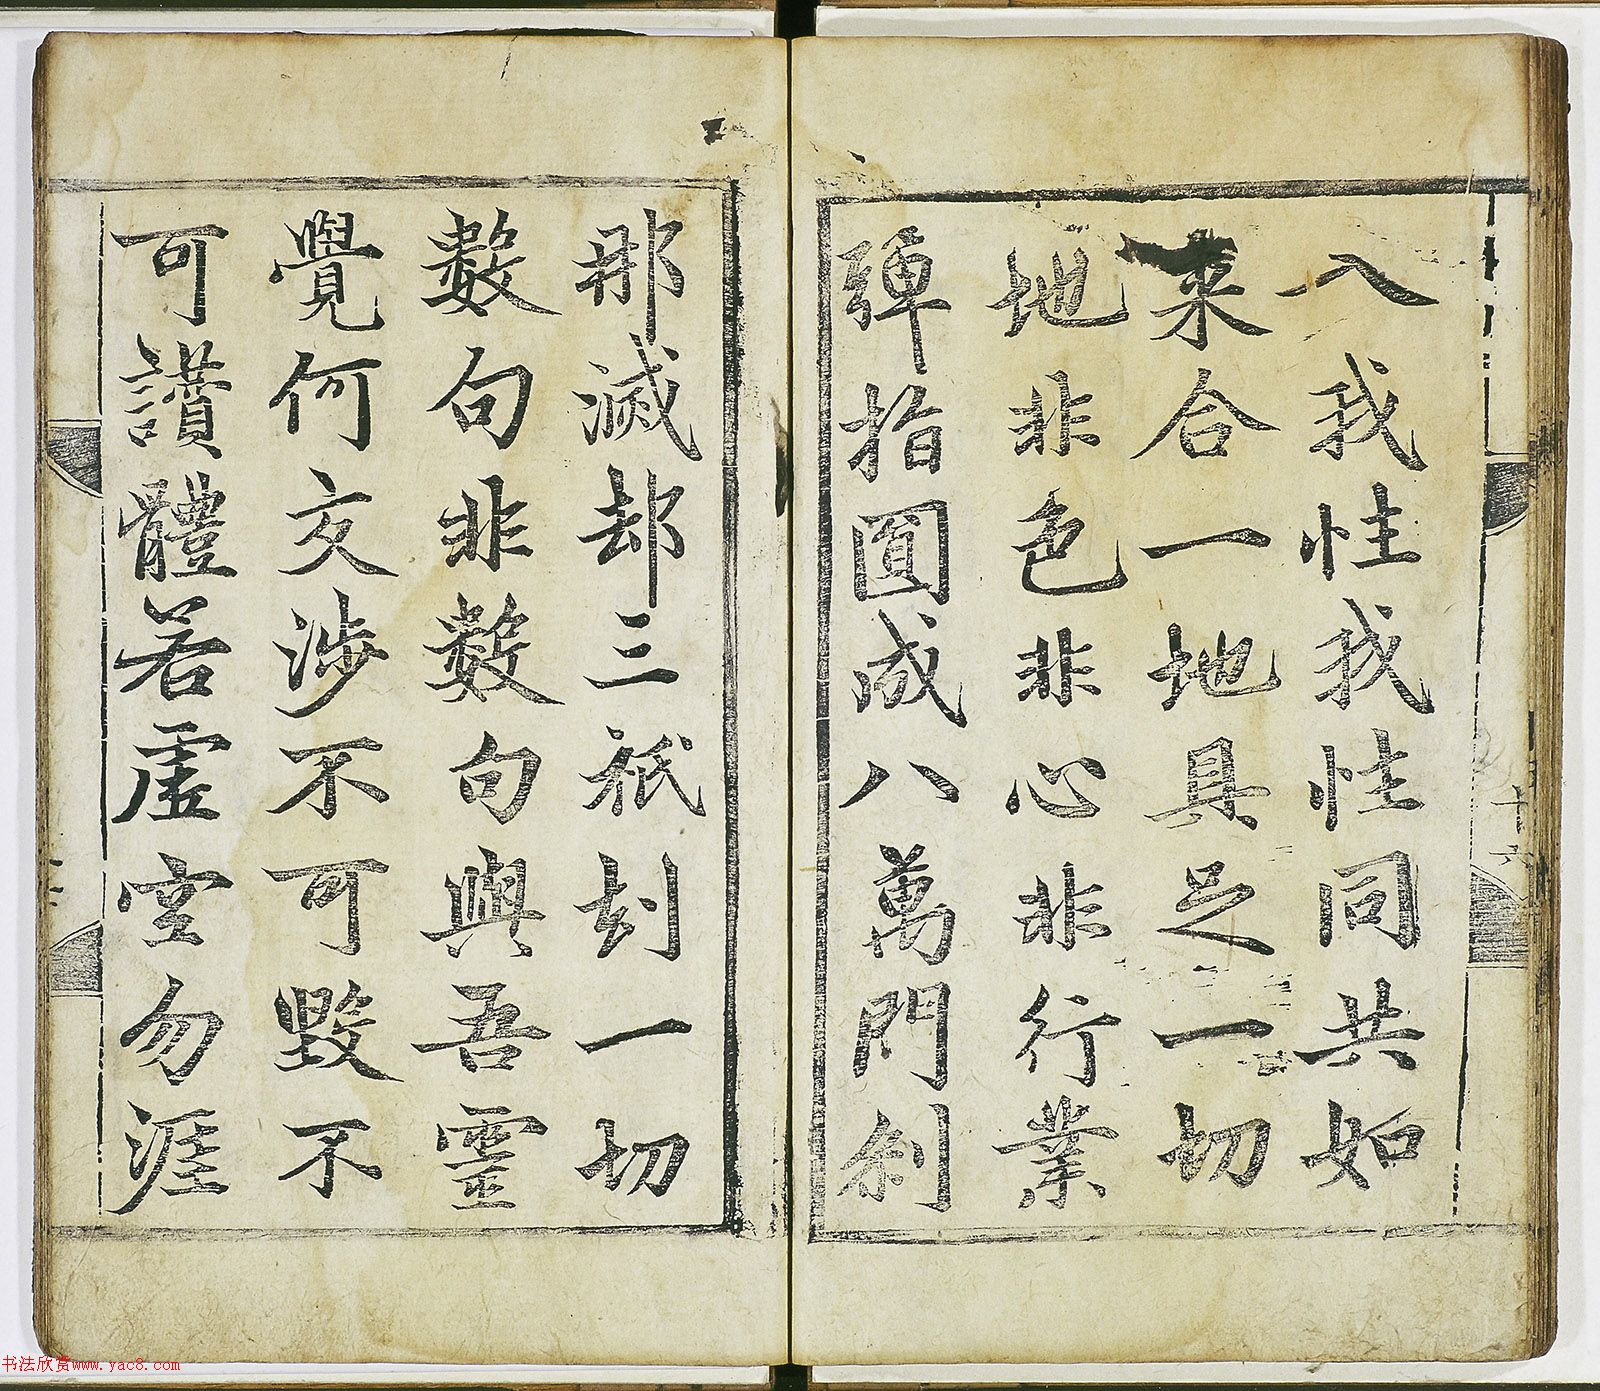 入我性我性同共如
来合一地具足一切
地非色非心非行業
彈指圎成八萬門刹
那滅却三祇刼一切
數句非數句與吾靈
覺何交涉不可毀不
可讃體若虛空勿涯
书法欣赏www.yac8.com